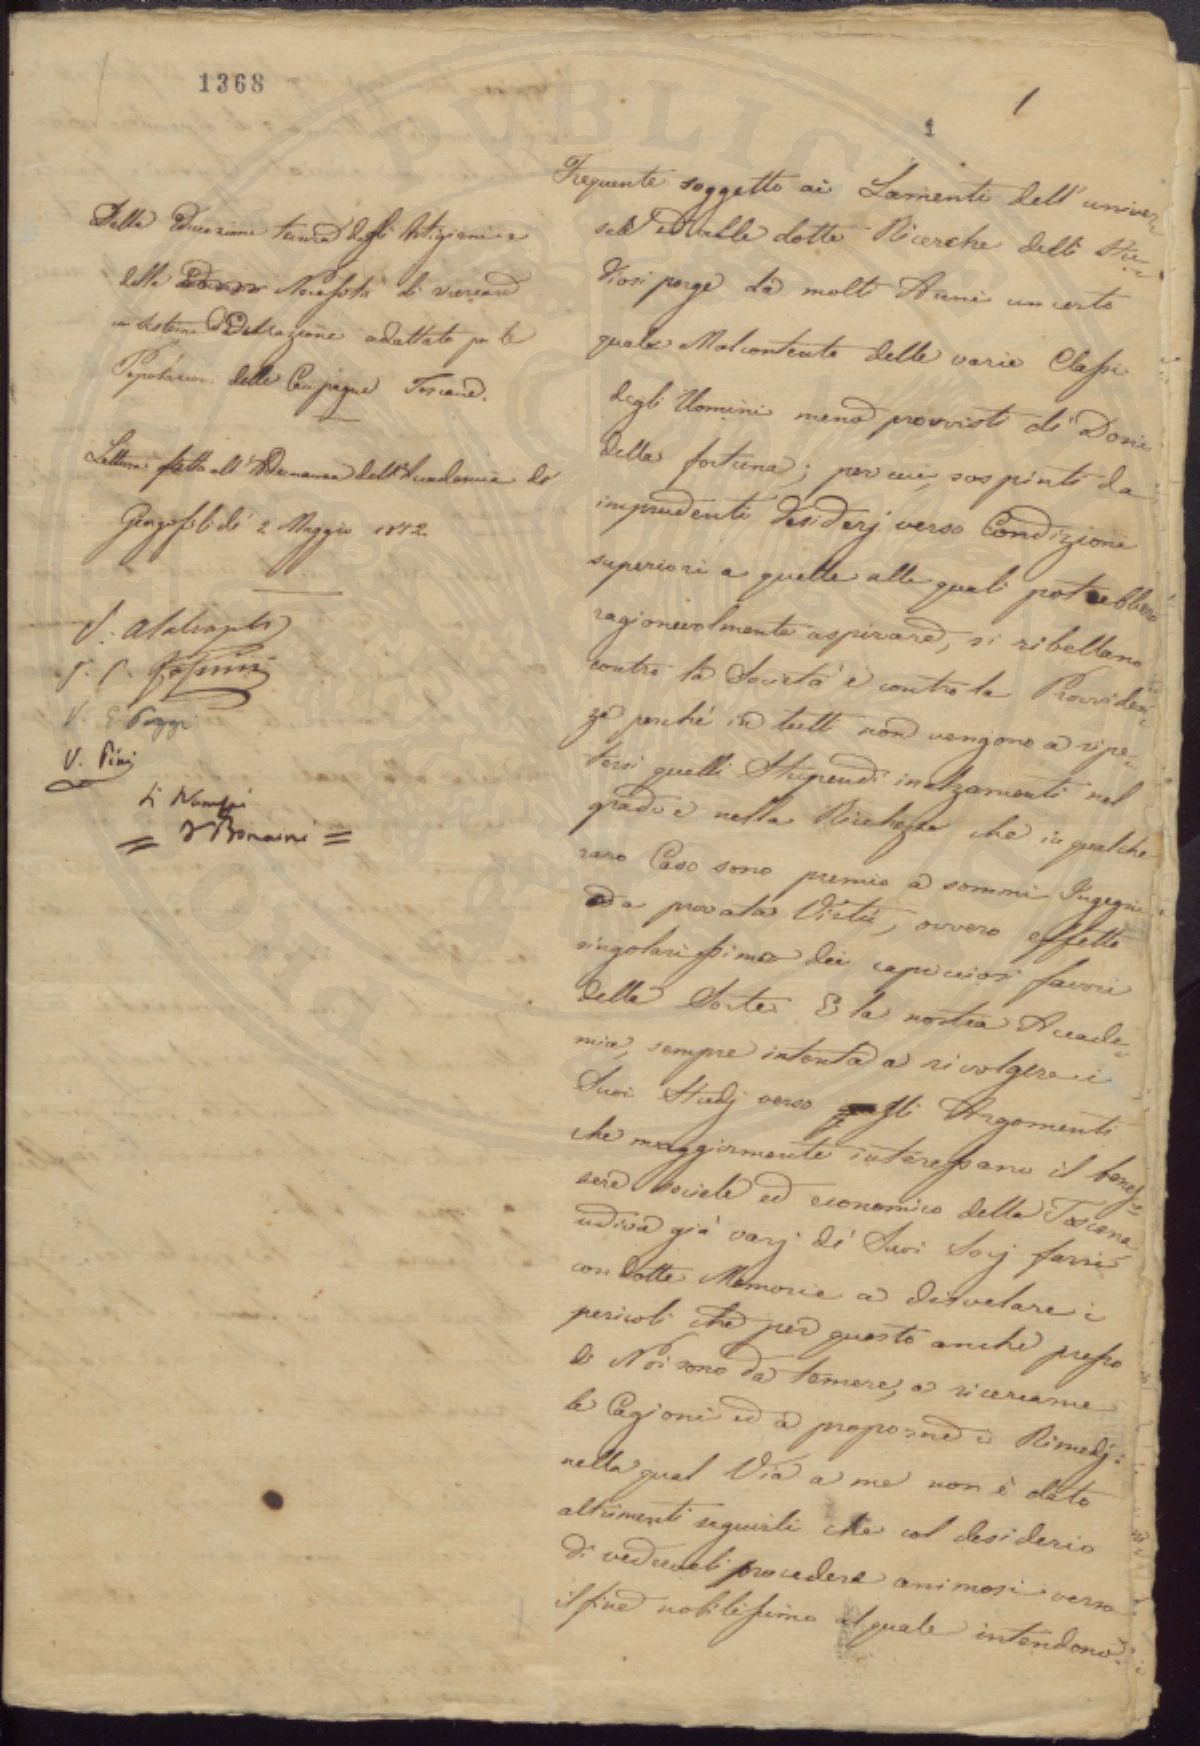 1368
1
1
Della Educazione tecnica degli Artigiani e
della Necessità di ricercare
un sistema d'Educazione adattato per le
Popolazioni delle Campagne Toscane.
Lettura fatta all'Adunanza dell'Accademia de
Georgofili de' 2 Maggio 1842
V. E Poggi
V. Pini
F Bonaini
Frequente soggetto ai Lamenti dell'univer
sale ed alle dotte Ricerche delli Stu-
diosi porge da molti Anni un certo
quale Malcontento delle varie Classi
degli Uomini meno provvisti di Doni
della fortuna; per cui, sospinti da
imprudenti desiderj verso Condizioni
superiori a quelle alle quali potrebbero
ragionevolmente aspirare, si ribellano
contro la Società e contro la Provviden-
za perché in tutti non vengono a ripe-
tersi quelli Stupendi inalzamenti nel
grado e nella Richezza che in qualche
raro Caso sono premio a sommi Ingegni
o a provata Virtù, ovvero effetto
singolarissimo dei capricciosi favori
della Sorte. E la nostra Accade-
mia, sempre intenta a rivolgere i
Suoi Studj verso gli Argomenti
che maggiormente interessano il benes-
sere sociale ed economico della Toscana,
udiva già varj de' Suoi Socj farsi
con dotte Memorie a disvelare i
pericoli che per questo anche presso
di Noi sono da temere, a ricercarne
le Cagioni ed a proporne i Rimedj:
nella qual Via a me non è dato
altrimenti seguirli che col desiderio
di vederveli procedere animosi verso
il fine nobilissimo al quale intendono.